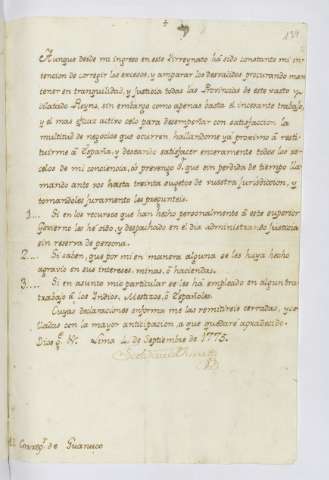 139
Aunque desde mi ingreso en este Virreynato há sido constante mi in
tencion de corregir los excesos, y amparar los desvalidos procurando man
tener en tranquilidad, y Justicia todas las Provincias de este vasto y
dilatado Reyno, sin embargo como apenas basta el incesante trabajo,
y el mas eficaz activo celo para desempeñar con satisfaccion la
multitud de negocios que ocurren hallandome yá proximo á resti
tuirme á España, y deseando satisfacer enteramente todos los re
celos de mi conciencia, os prevengo q.e sin perdida de tiempo lla
mando ante vos hasta treinta sugetos de vuestra Jurisdiccion, y
tomandoles Juramento les pregunteis.
1... Si en los recursos que han hecho personalmente á este superior
Govierno les hé oido, y despachado en el dia administrando Justicia
sin reserva de persona.
2... Si saben, que por mi en manera alguna se les haya hecho
agravio en sus intereses, minas, ó haciendas.
3... Si en asunto mio particular se les há empleado en algun tra
trabajo á los Indios, Mestizos, ó Españoles.
Cuyas declaraciones informa me las remitireis cerradas, y se
lladas con la mayor anticipacion, á que quedaré agradecido.
Dios g.e &c. Lima 4 de Septiembre de 1775.
Correg.r de Guanuco